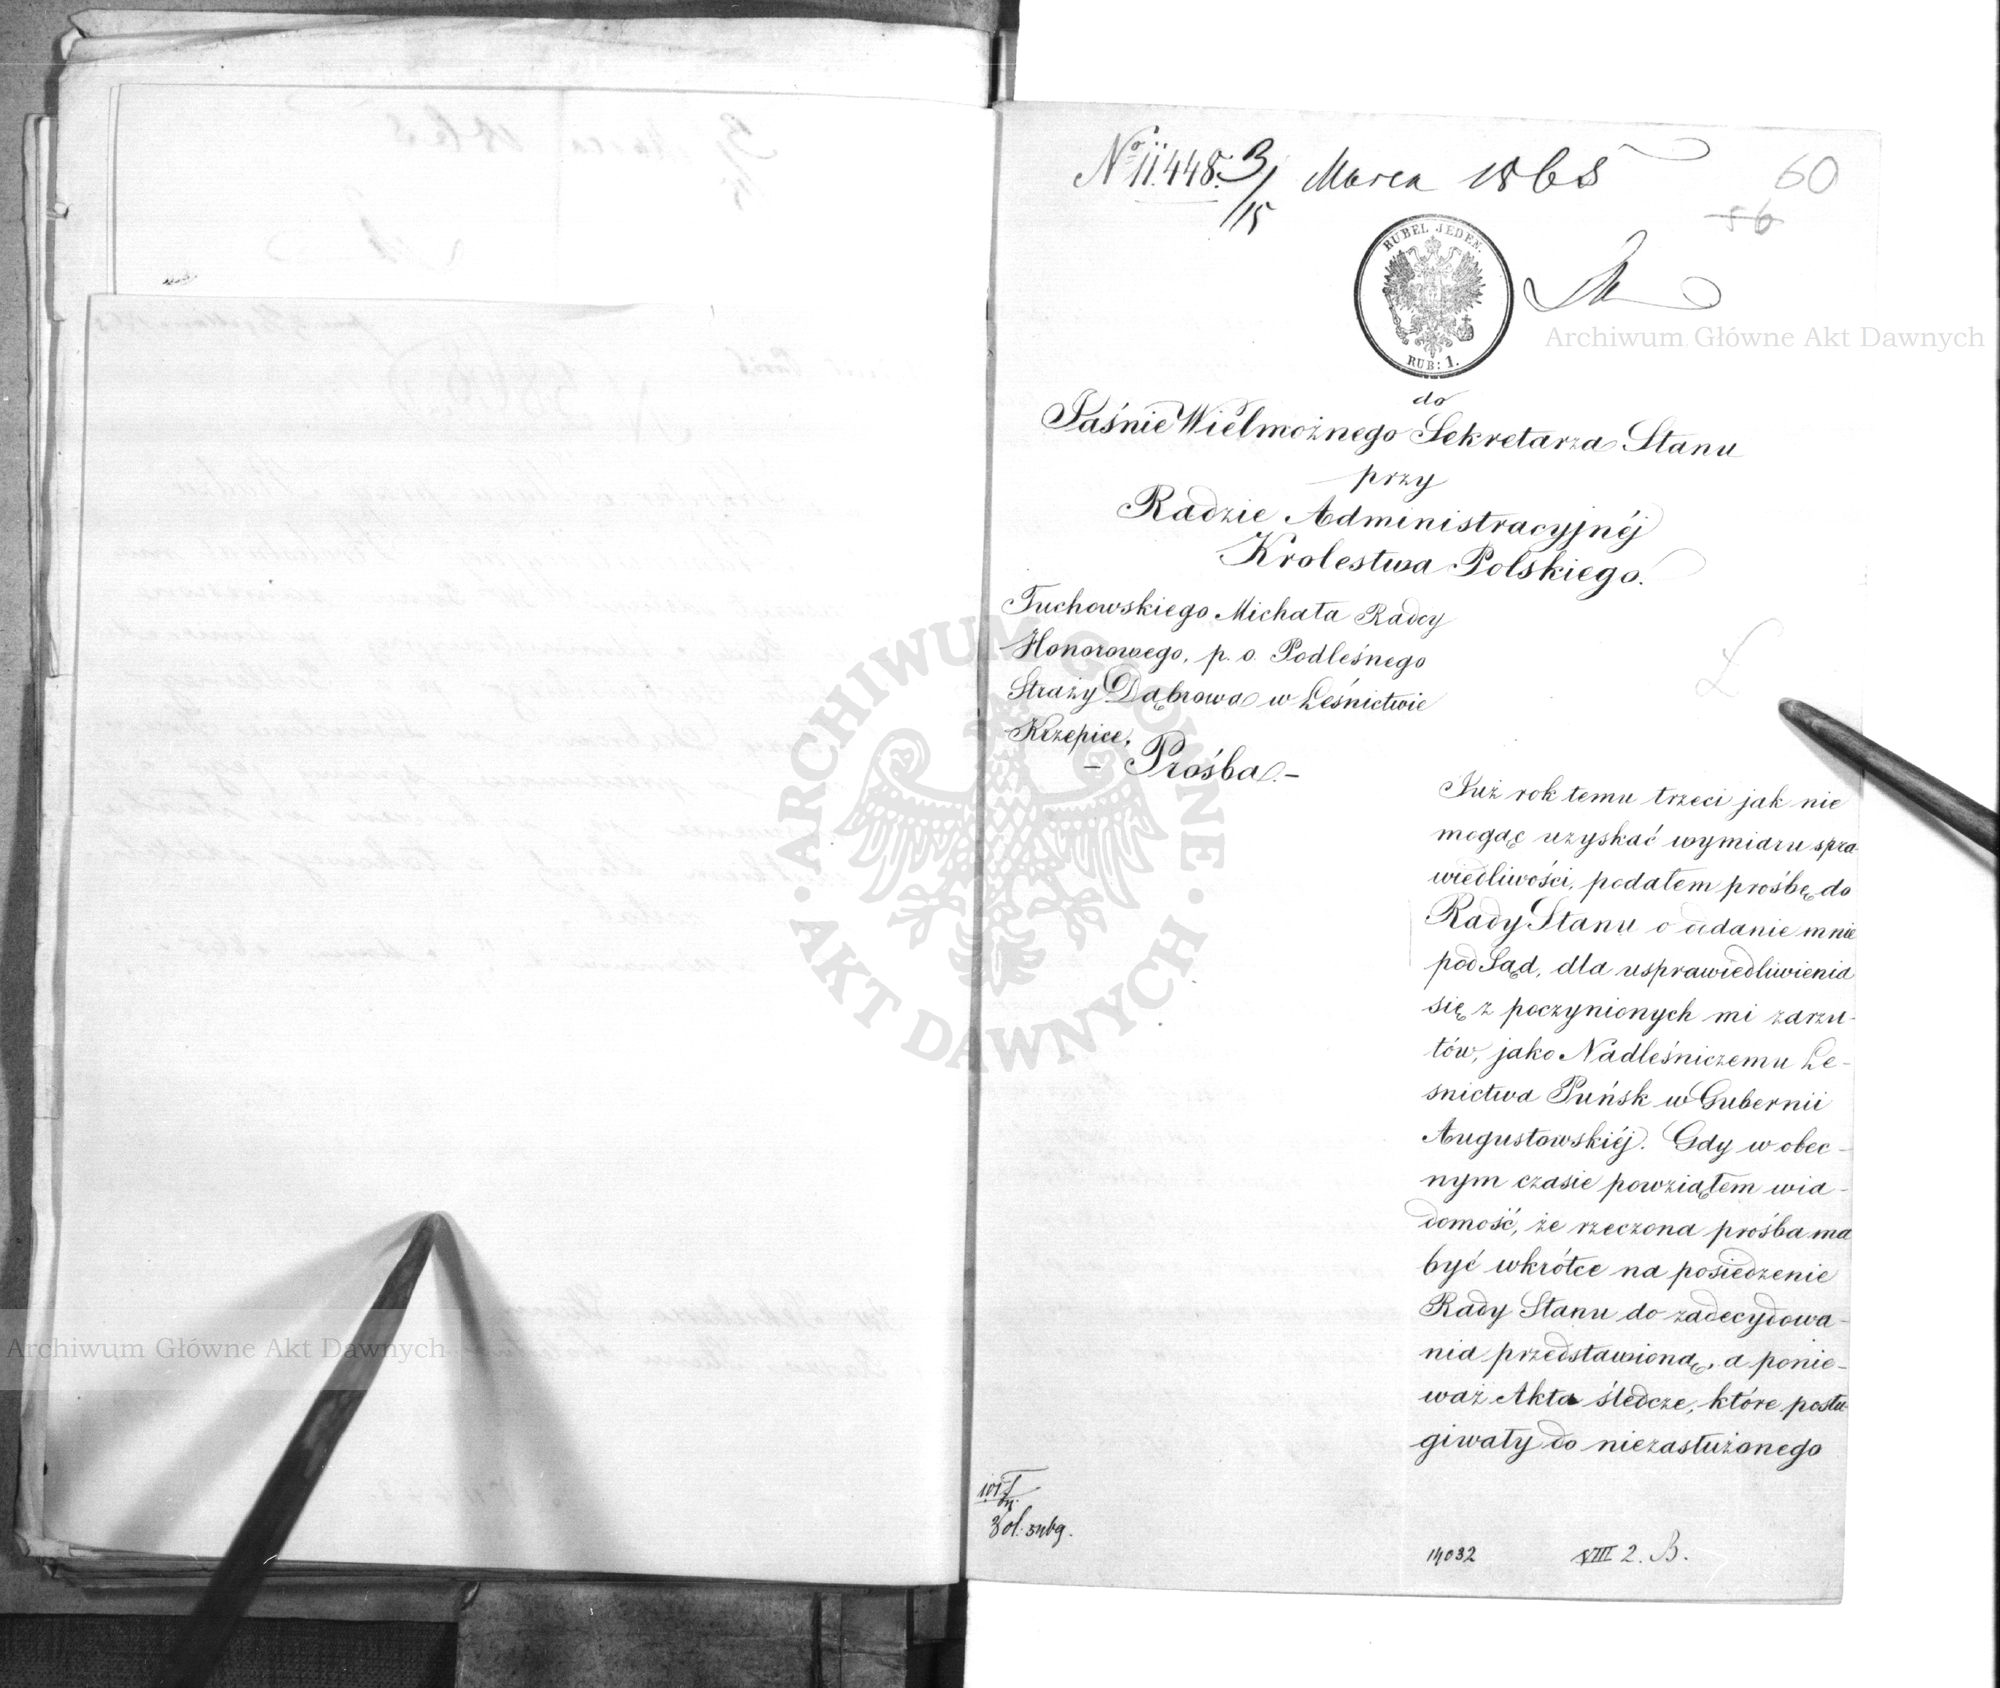 No 11.448. 3/15 Marca 1865
60
56
RUBEL JEDEN.
RUB: 1.
Archiwum Główne Akt Dawnych
do
Jaśnie Wielmożnego Sekretarza Stanu
przy
Radzie Administracyjnéj
Krolestwa Polskiego.
Tuchowskiego Michała Radcy
Honorowego, p. o. Podleśnego
Straży Dąbrowa w Leśnictwie
Krzepice,
- Prośba. -
Już rok temu trzeci jak nie
mogąc uzyskać wymiaru spra-
wiedliwości, podałem prośbę do
Rady Stanu o oddanie mnie
pod Sąd, dla usprawiedliwienia
się z poczynionych mi zarzu-
tów, jako Nadleśniczemu Le-
śnictwa Puńsk w Gubernii
Augustowskiéj. Gdy w obec-
nym czasie powziąłem wia-
domość, że rzeczona prośba ma
być wkrótce na posiedzenie
Rady Stanu do zadecydowa-
nia przedstawioną, a ponie-
waż Akta śledcze, które posłu-
giwały do niezasłużonego
14032 VIII 2. B.
ARCHIWUM GŁÓWNE · AKT DAWNYCH ·
Archiwum Główne Akt Dawnych